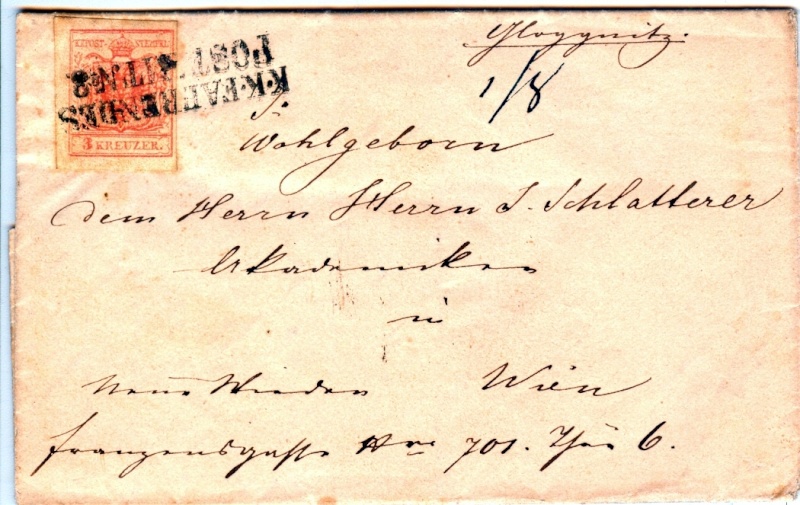 KKPOST-STEMPEL
3 KREUZER.
K.K.FAHRENDES
POST AMT №3
Gloggnitz.
1/8
Sr
Wohlgeborn
dem Herrn Herrn J. Schlatterer
Akademiker
in
Neue Wieden Wien
Franzensgasse Nro 701. Thür 6.